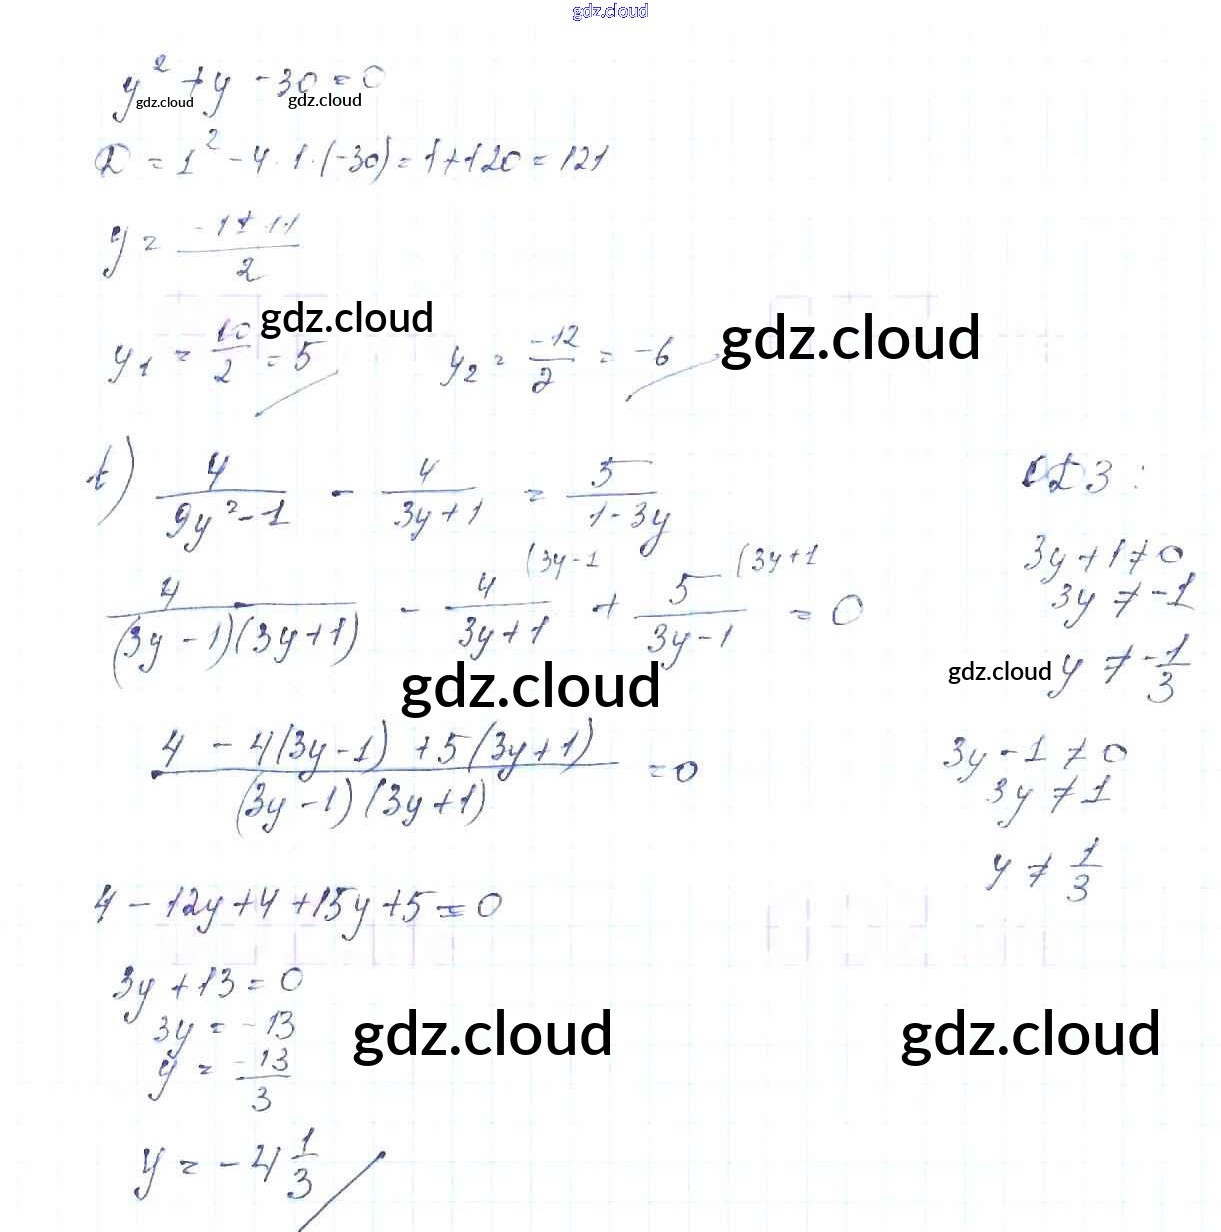 gdz.cloud
y² + y - 30 = 0
gdz.cloud gdz.cloud
D = 1² - 4 · 1 · (-30) = 1 + 120 = 121
y = (-1 ± 11)/2
gdz.cloud
y₁ = 10/2 = 5 y₂ = -12/2 = -6 gdz.cloud
4/(9y² - 1) - 4/(3y + 1) = 5/(1 - 3y) ОДЗ:
(3y - 1 (3y + 1 3y + 1 ≠ 0
4/((3y - 1)(3y + 1)) - 4/(3y + 1) + 5/(3y - 1) = 0 3y ≠ -1
gdz.cloud gdz.cloud y ≠ -1/3
(4 - 4(3y - 1) + 5(3y + 1))/((3y - 1)(3y + 1)) = 0 3y - 1 ≠ 0
3y ≠ 1
y ≠ 1/3
4 - 12y + 4 + 15y + 5 = 0
3y + 13 = 0
3y = -13 gdz.cloud gdz.cloud
y = -13/3
y = -4 1/3